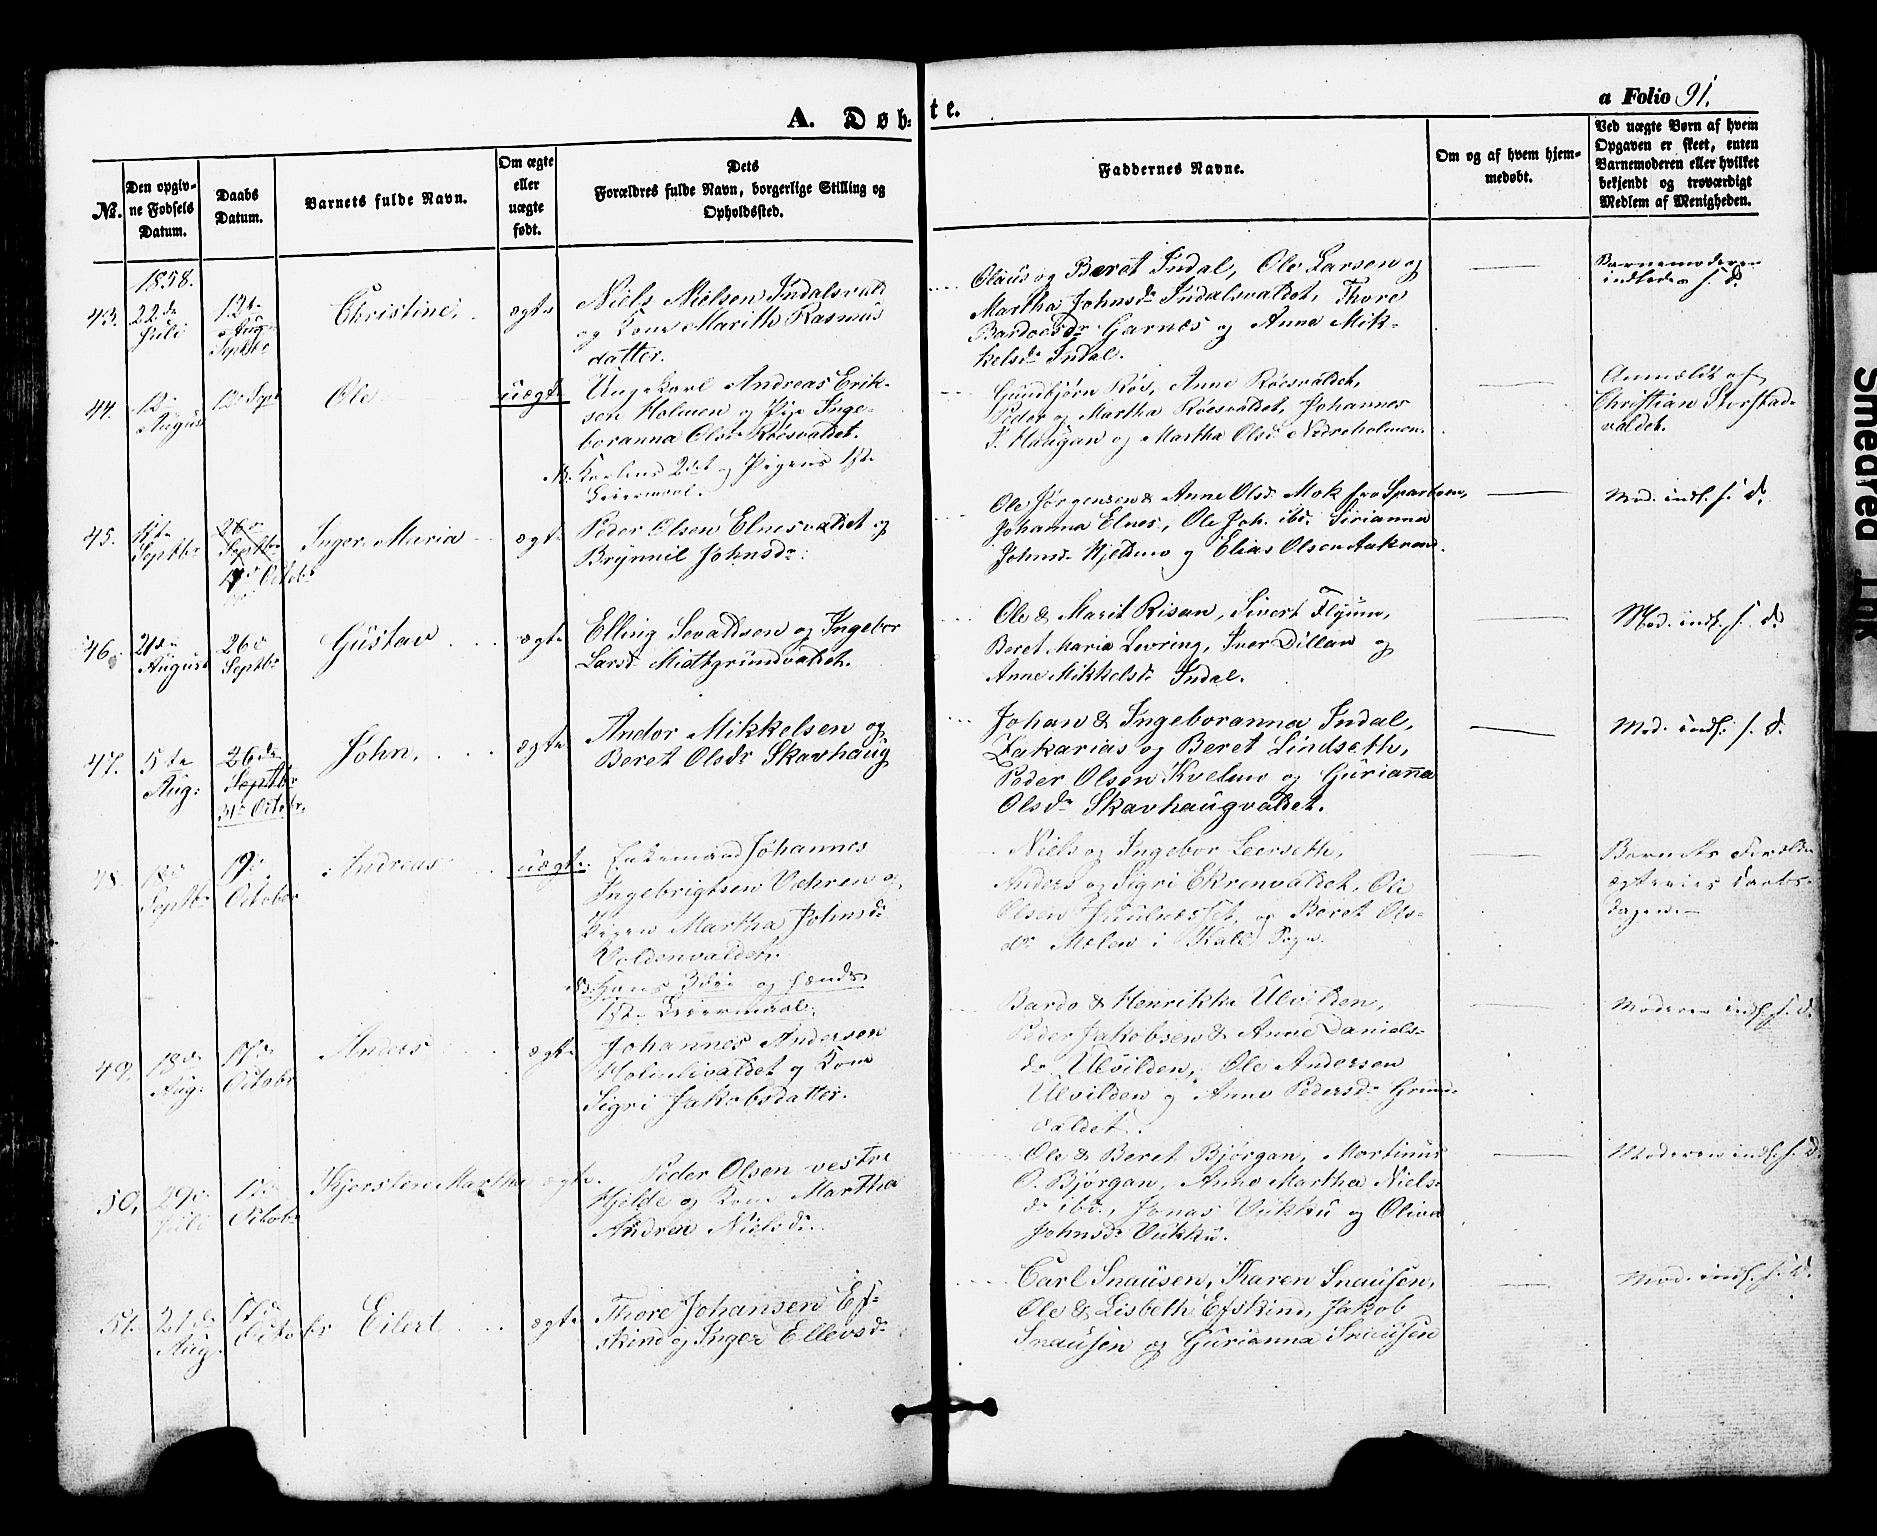 A. Døb-te.
a Folio 91.
No.
Den opgiv-
ne Fødsels
Datum.
Daabs
Datum.
Barnets fulde Navn.
Om ægte
eller
uægte
født.
Dets
Forældres fulde Navn, borgerlige Stilling og
Opholdssted.
Faddernes Navne.
Om og af hvem hjem-
medøbt.
Ved uægte Børn af hvem
Opgaven er skeet, enten
Barnemoderen eller hvilket
bekjendt og troværdigt
Medlem af Menigheden.
1858.
43.
22de
Juli
12te
Aug
Septbr
Christine,
ægte
Niels Nielsen Indalsvald
og Kone Marith Rasmus
datter.
Olaus og Beret Indal, Ole Larsen og
Martha Johnsdr Indalsvaldet, Thore
Bardoesdr Garnæs og Anne Mik-
kelsdr Indal.
Barnemoderen
indleder s. D.
44.
12
August
12 Sept
Ole
uægte
Ungekarl Andreas Erik-
sen Holmen og Pige Inge-
boranna Olsdr Röesvaldet.
NB. Karlens 2det og Pigens 1ste
Leiermaal.
Gundbjørn Röe, Anne Röesvaldet,
Peder og Martha Röesvaldet, Johannes
J. Haugan og Martha Olsdr Nedreholmen.
Anmeldt af
Christian Storstad-
valdet.
45.
Septbr
26de
Septbr
October
Inger Maria
ægte
Peder Olsen Elnesvaldet og
Brynnil Johnsdr.
Ole Jørgensen & Anne Olsdr Mok fra Sparboen,
Johanna Elnes, Ole Joh. ibd. Sirianna
Johnsdr Hjeldmo og Elias Olsen Aakran.
Mod. indl. s. D.
46.
21de
August
26de
Septbr
Gustav
ægte
Elling Sevaldsen og Ingebor
Larsdr Midtgrundvaldet.
Ole & Marit Risan, Sivert Flyum,
Beret Maria Levring, Iver Dillan og
Anne Mikkelsdr Indal.
Mod. indl. s. D.
47.
5te
Aug:
26de
Septbr
31te Octobr.
John,
ægte
Andor Mikkelsen og
Beret Olsdr Skavhaug
Johan & Ingeboranna Indal,
Zakarias og Beret Lindseth,
Peder Olsen Kvelmo og Gurianna
Olsdr Skavhaugvaldet.
Mod. indl. s. D.
48
Septbr
October
Andreas
uægte
Enkemand Johannes
Ingebrigtsen Væhren og
Pigen Martha Johnsdr
Voldenvaldet.
NB. Hans 3die og hendes
1ste Leiermaal.
Niels og Ingebor Leerseth,
Anders og Sigri Ekrenvaldet, Ole
Olsen og Beret Ols-
dr Melen i Kall Sogn.
Barnets Forældre
ægtevies Daabs-
dagen.
49.
18de
Aug:
17de
Octobr
Anders
ægte
Johannes Andersen
og Kone
Sigri Jakobsdatter.
Bardo & Henrikka Ulvilden,
Peder Jakobsen & Anne Daniels-
dr Ulvilden, Ole Andersen
Ulvilden og Anne Pedersdr Grund-
valdet.
Moderen indl. s. D.
50.
29de
Juli
17de
Octobr
Kjersten Martha
ægte.
Peder Olsen vestre
Hjelde og Kone Martha
Andrea Nielsdr.
Ole & Beret Bjørgan, Martinus
O. Bjørgan, Anne Martha Niels-
dr ibd., Jonas Vukku og Oliva
Johnsdr Vukku.
Moderen indl. s. D.
51.
21de
Aug.
17de
Octobr
Eilert
ægte
Thore Johansen Ef-
skim og Inger Ellevsdr
Carl Snausen, Karen Snausen,
Ole & Lisbeth Efskind, Jakob
Snausen og Gurianna Snausen
Mod. indl. s. D.
Smeared Ink